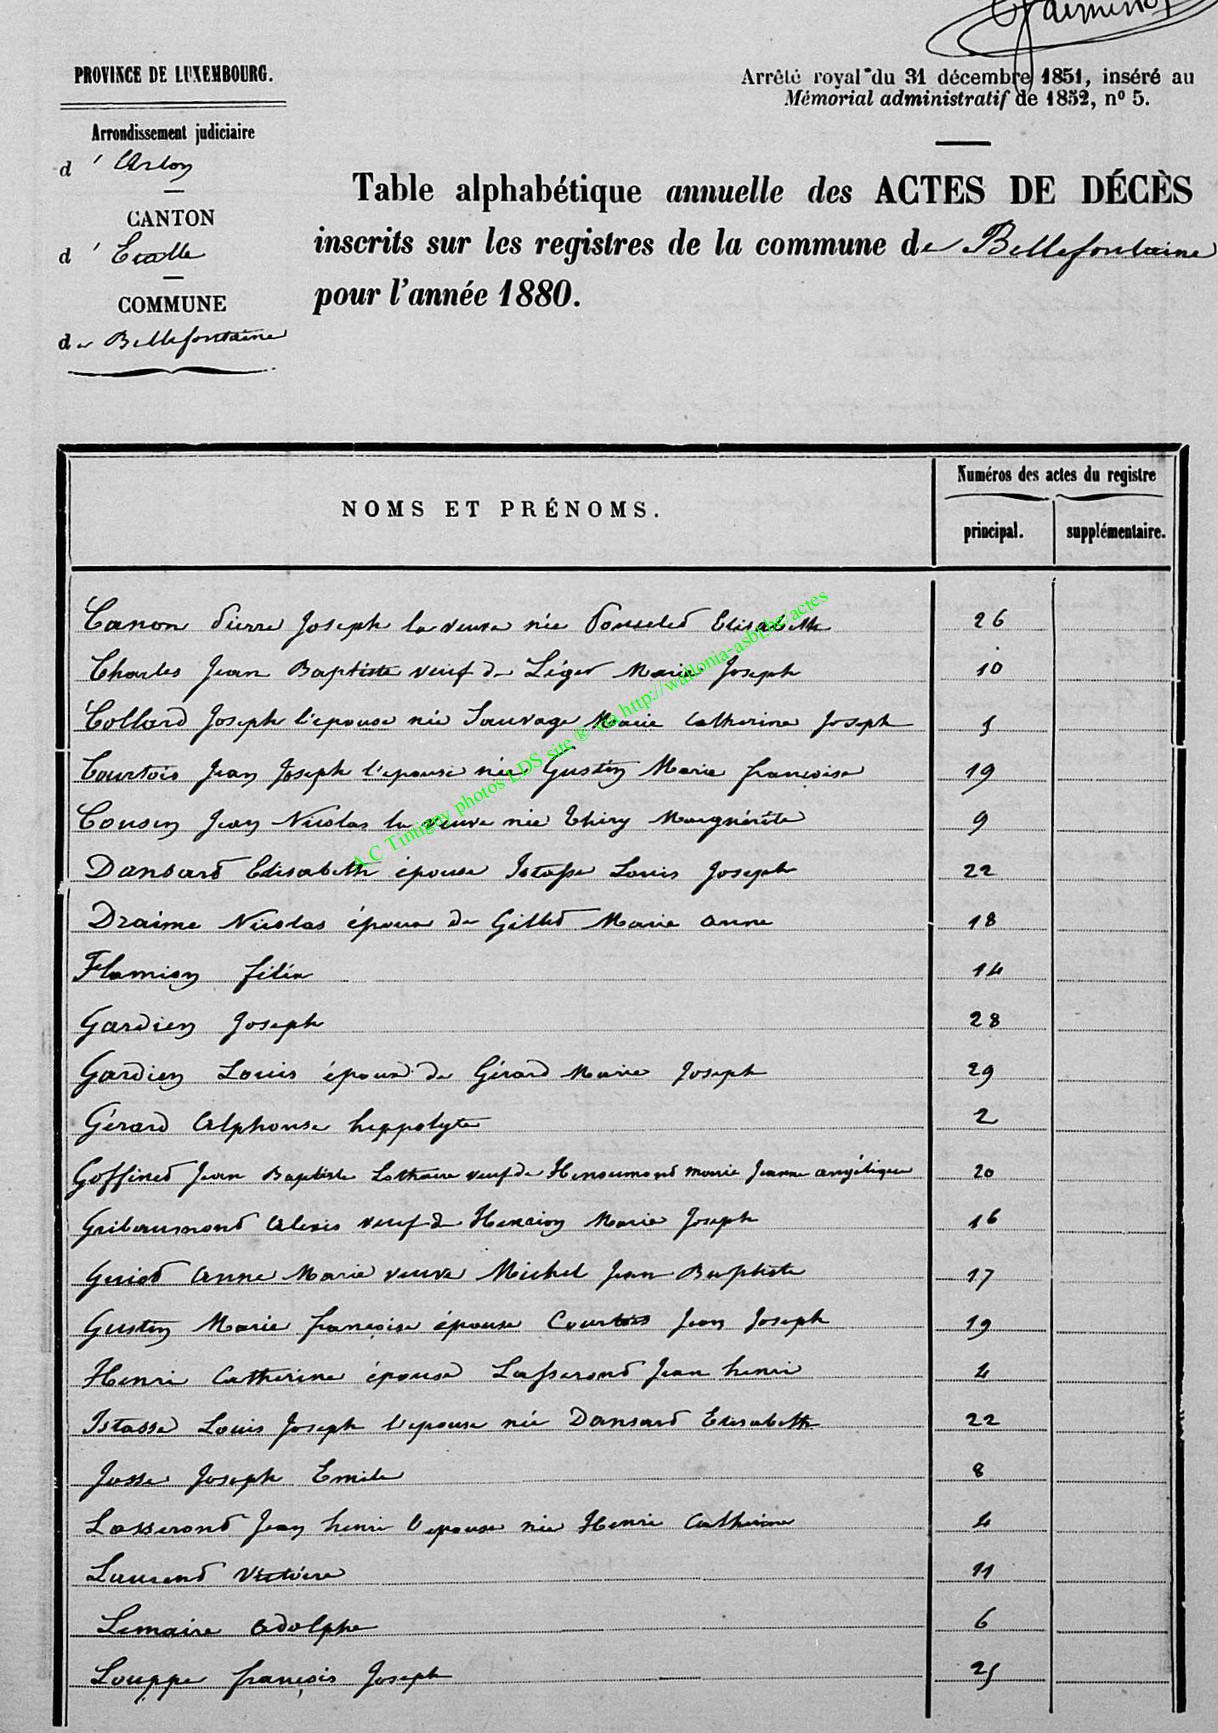 PROVINCE DE LUXEMBOURG.
Arrondissement judiciaire
d' Arlon
CANTON
d' Etalle
COMMUNE
de Bellefontaine
Arrêté royal du 31 décembre 1851, inséré au
Mémorial administratif de 1852, nº 5.
Table alphabétique annuelle des ACTES DE DÉCÈS
inscrits sur les registres de la commune de Bellefontaine
pour l'année 1880.
NOMS ET PRÉNOMS.
Numéros des actes du registre
principal. supplémentaire.
Canon Pierre Joseph la veuve née Poncelet Elisabeth 26
Charles Jean Baptiste veuf de Léger Marie Joseph 10
Collard Joseph l'épouse née Sauvage Marie Catherine Joseph 5
Courtois Jean Joseph l'epouse née Gustin Marie françoise 19
Cousin Jean Nicolas la veuve née Thiry Marguérite 9
Dansard Elisabeth épouse Istasse Louis Joseph 22
Draime Nicolas époux de Gillet Marie anne 18
Flamion félix 14
Gardien Joseph 28
Gardien Louis époux de Gérard Marie Joseph 29
Gérard Alphonse hippolyte 2
Goffinet Jean Baptiste Lothaire veuf de marie Jeanne angélique 20
Gribaumont Alexis veuf de Henrion Marie Joseph 16
Guiot Anne Marie veuve Michel Jean Baptiste 17
Gustin Marie françoise épouse Courtois Jean Joseph 19
Henri Catherine épouse Lasserond Jean henri 4
Istasse Louis Joseph l'epouse née Dansard Elisabeth 22
Josse Joseph Emile 8
Lasserond Jean henri l'epouse née Henri Catherine 4
Laurend Victoire 11
Lemaire Adolphe 6
Louppe françois Joseph 25
A C Tintigny photos LDS site ® via http://wallonia-asbl.be/actes